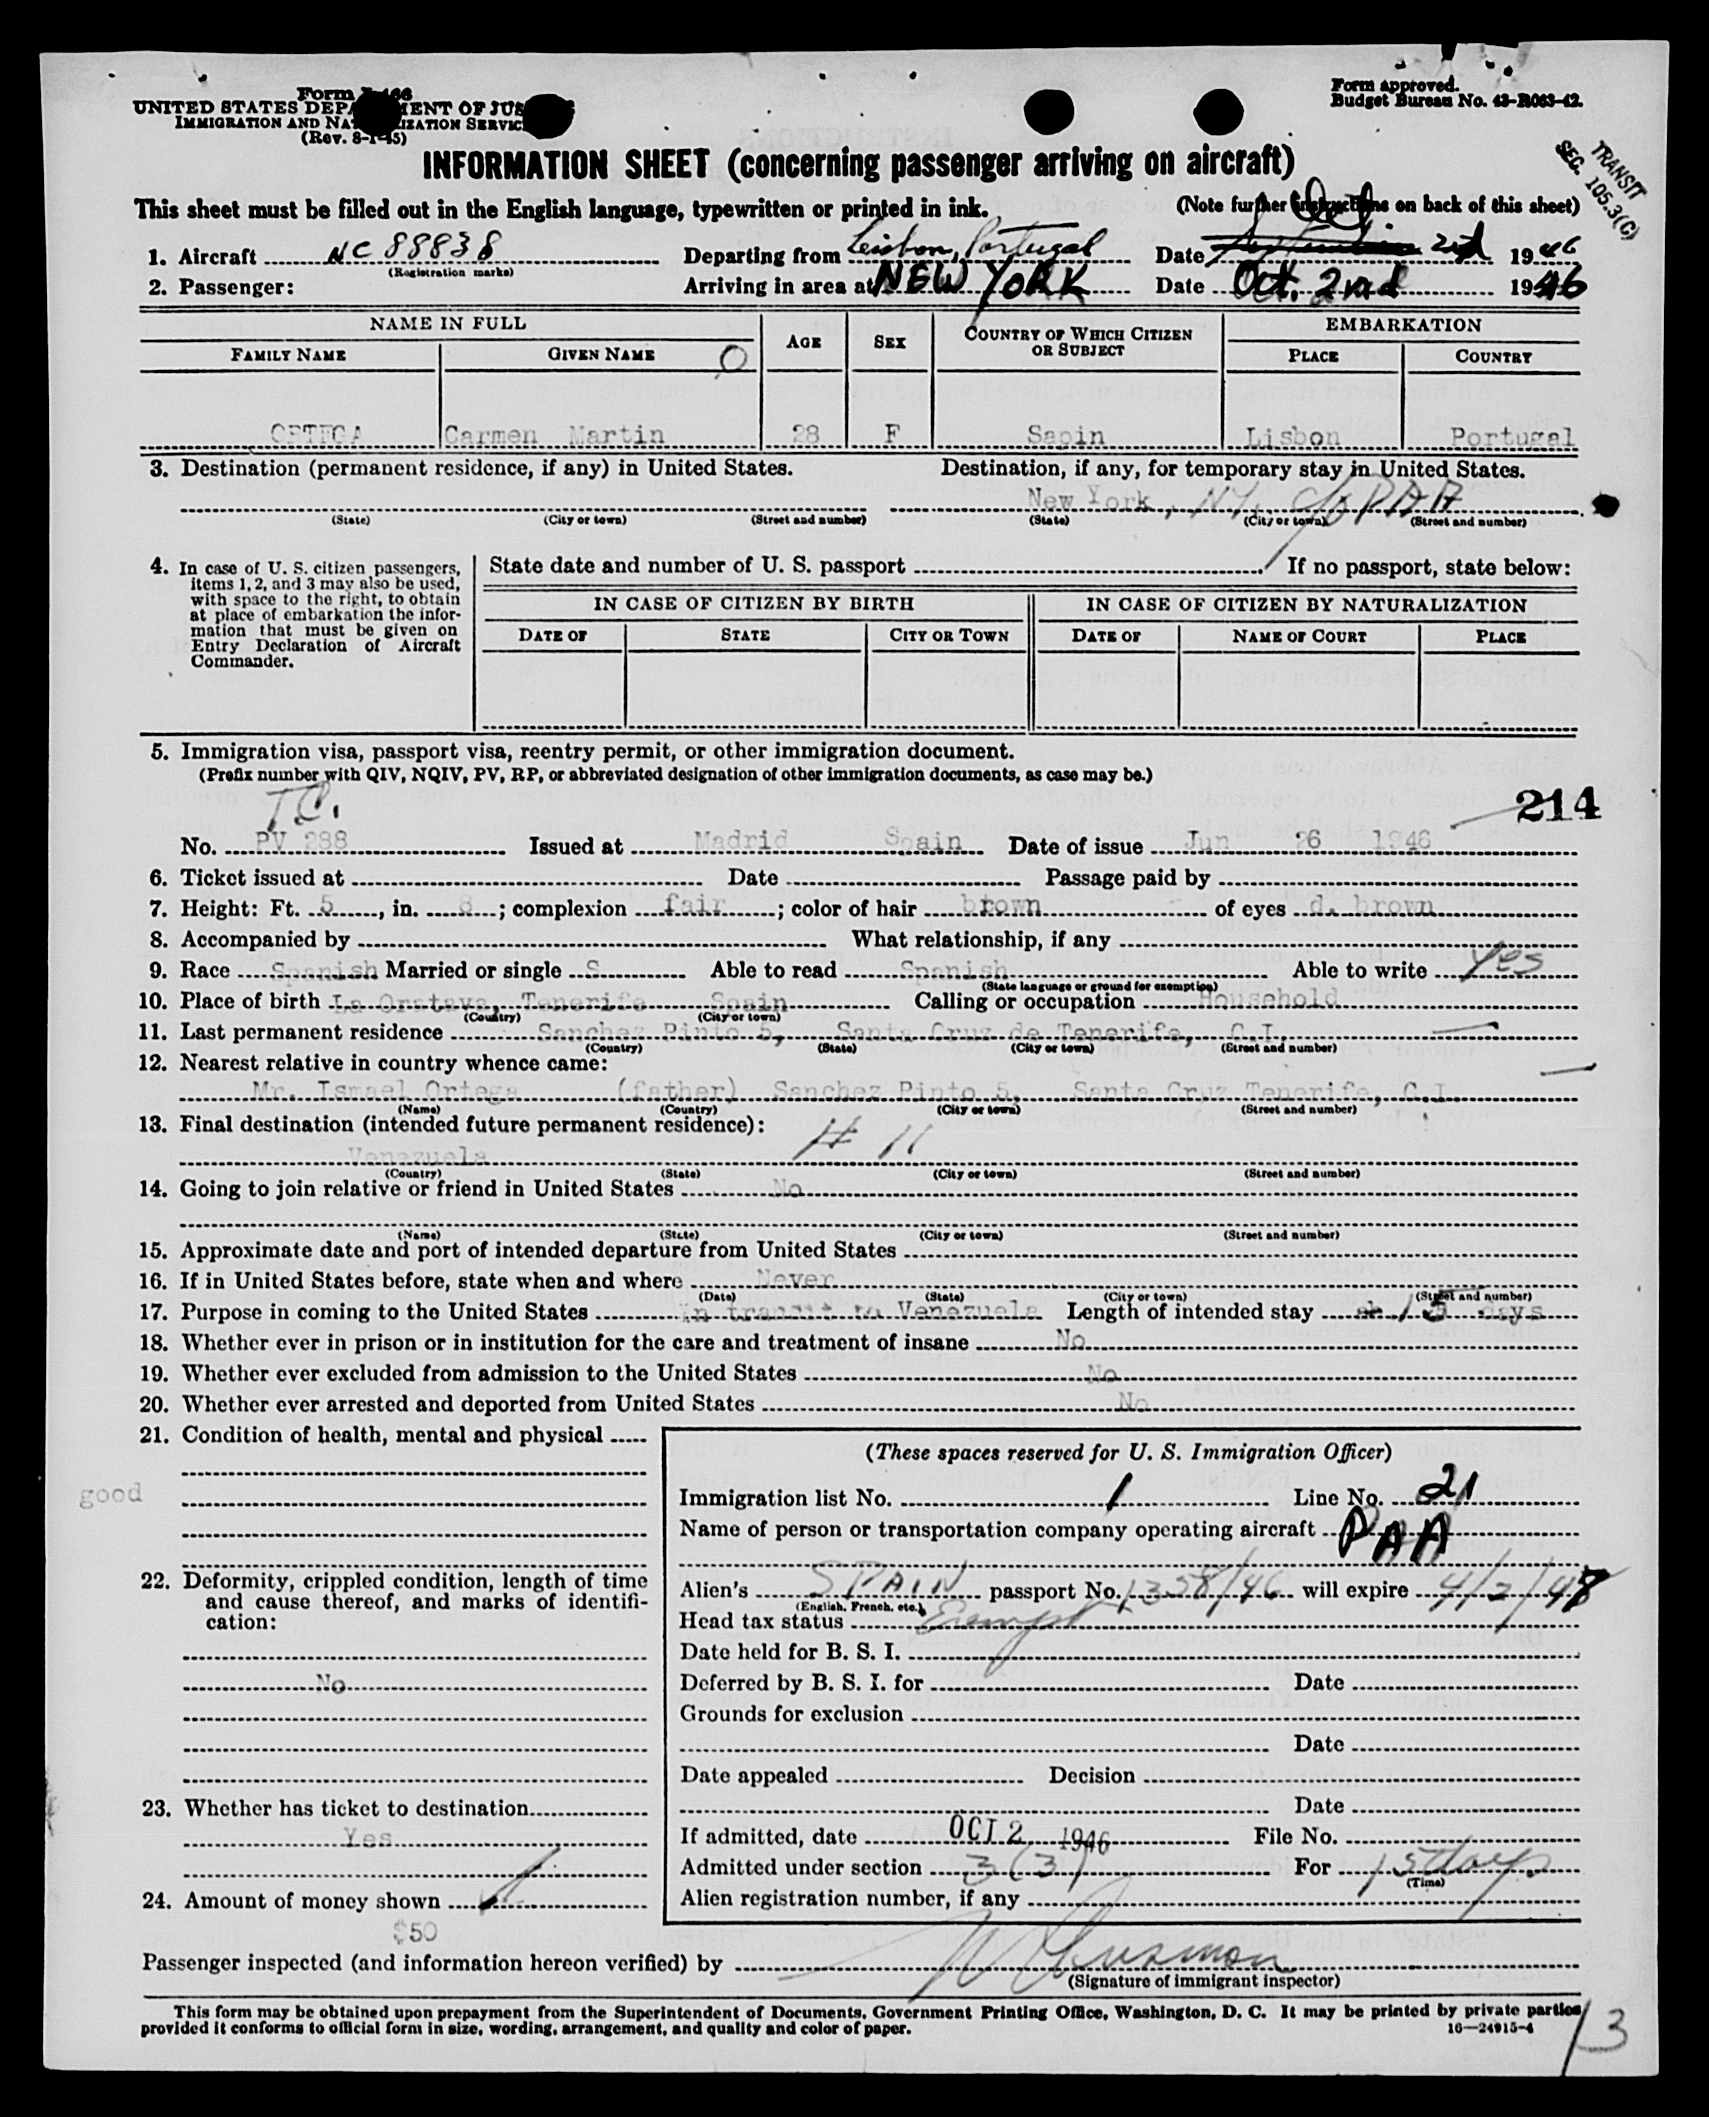 Form I-466
UNITED STATES DEPARTMENT OF JUSTICE
IMMIGRATION AND NATURALIZATION SERVICE
(Rev. 8-1-45)
Form approved.
Budget Bureau No. 43-R063-42.
TRANSIT
SEC. 105.3(C)
INFORMATION SHEET (concerning passenger arriving on aircraft)
This sheet must be filled out in the English language, typewritten or printed in ink. (Note further instructions on back of this sheet)
Oct
1. Aircraft NC 88838 Departing from Lisbon, Portugal Date September 2nd 1946
(Registration marks)
2. Passenger: Arriving in area at NEW YORK Date Oct. 2nd 1946
NAME IN FULL AGE SEX COUNTRY OF WHICH CITIZEN OR SUBJECT EMBARKATION
FAMILY NAME GIVEN NAME O PLACE COUNTRY
ORTEGA Carmen Martin 28 F Sapin Lisbon Portugal
3. Destination (permanent residence, if any) in United States. Destination, if any, for temporary stay in United States.
New York, NY. c/o PAA
(State) (City or town) (Street and number) (State) (City or town) (Street and number)
4. In case of U. S. citizen passengers, items 1, 2, and 3 may also be used, with space to the right, to obtain at place of embarkation the information that must be given on Entry Declaration of Aircraft Commander.
State date and number of U. S. passport If no passport, state below:
IN CASE OF CITIZEN BY BIRTH IN CASE OF CITIZEN BY NATURALIZATION
DATE OF STATE CITY OR TOWN DATE OF NAME OF COURT PLACE
5. Immigration visa, passport visa, reentry permit, or other immigration document.
(Prefix number with QIV, NQIV, PV, RP, or abbreviated designation of other immigration documents, as case may be.)
T.C. 214
No. PV 288 Issued at Madrid Spain Date of issue Jun 26 1946
6. Ticket issued at Date Passage paid by
7. Height: Ft. 5, in. 8; complexion fair; color of hair brown of eyes d. brown
8. Accompanied by What relationship, if any
9. Race Spanish Married or single S Able to read Spanish Able to write Yes
(State language or ground for exemption)
10. Place of birth La Oratava, Tenerife Spain Calling or occupation Household
(Country) (City or town)
11. Last permanent residence Sanchez Pinto 5, Santa Cruz de Tenerife, C.I.
(Country) (State) (City or town) (Street and number)
12. Nearest relative in country whence came:
Mr. Ismael Ortega (father) Sanchez Pinto 5, Santa Cruz Tenerife, C.I.
(Name) (Country) (City or town) (Street and number)
13. Final destination (intended future permanent residence): # 11
Venezuela
(Country) (State) (City or town) (Street and number)
14. Going to join relative or friend in United States No
(Name) (State) (City or town) (Street and number)
15. Approximate date and port of intended departure from United States
16. If in United States before, state when and where Never
(Date) (State) (City or town) (Street and number)
17. Purpose in coming to the United States In transit to Venezuela Length of intended stay 15 days
18. Whether ever in prison or in institution for the care and treatment of insane No
19. Whether ever excluded from admission to the United States No
20. Whether ever arrested and deported from United States No
21. Condition of health, mental and physical
good
22. Deformity, crippled condition, length of time and cause thereof, and marks of identification:
No
23. Whether has ticket to destination
Yes
24. Amount of money shown
$50
(These spaces reserved for U. S. Immigration Officer)
Immigration list No. 1 Line No. 21
Name of person or transportation company operating aircraft PAA
Alien's SPAIN passport No. 1358/46 will expire 4/2/48
(English, French, etc.)
Head tax status Exempt
Date held for B. S. I.
Deferred by B. S. I. for Date
Grounds for exclusion
Date
Date appealed Decision
Date
If admitted, date OCT 2 1946 File No.
Admitted under section 3(3) For 15 days.
(Time)
Alien registration number, if any
Passenger inspected (and information hereon verified) by
(Signature of immigrant inspector)
This form may be obtained upon prepayment from the Superintendent of Documents, Government Printing Office, Washington, D. C. It may be printed by private parties
provided it conforms to official form in size, wording, arrangement, and quality and color of paper. 16—24915-4
13